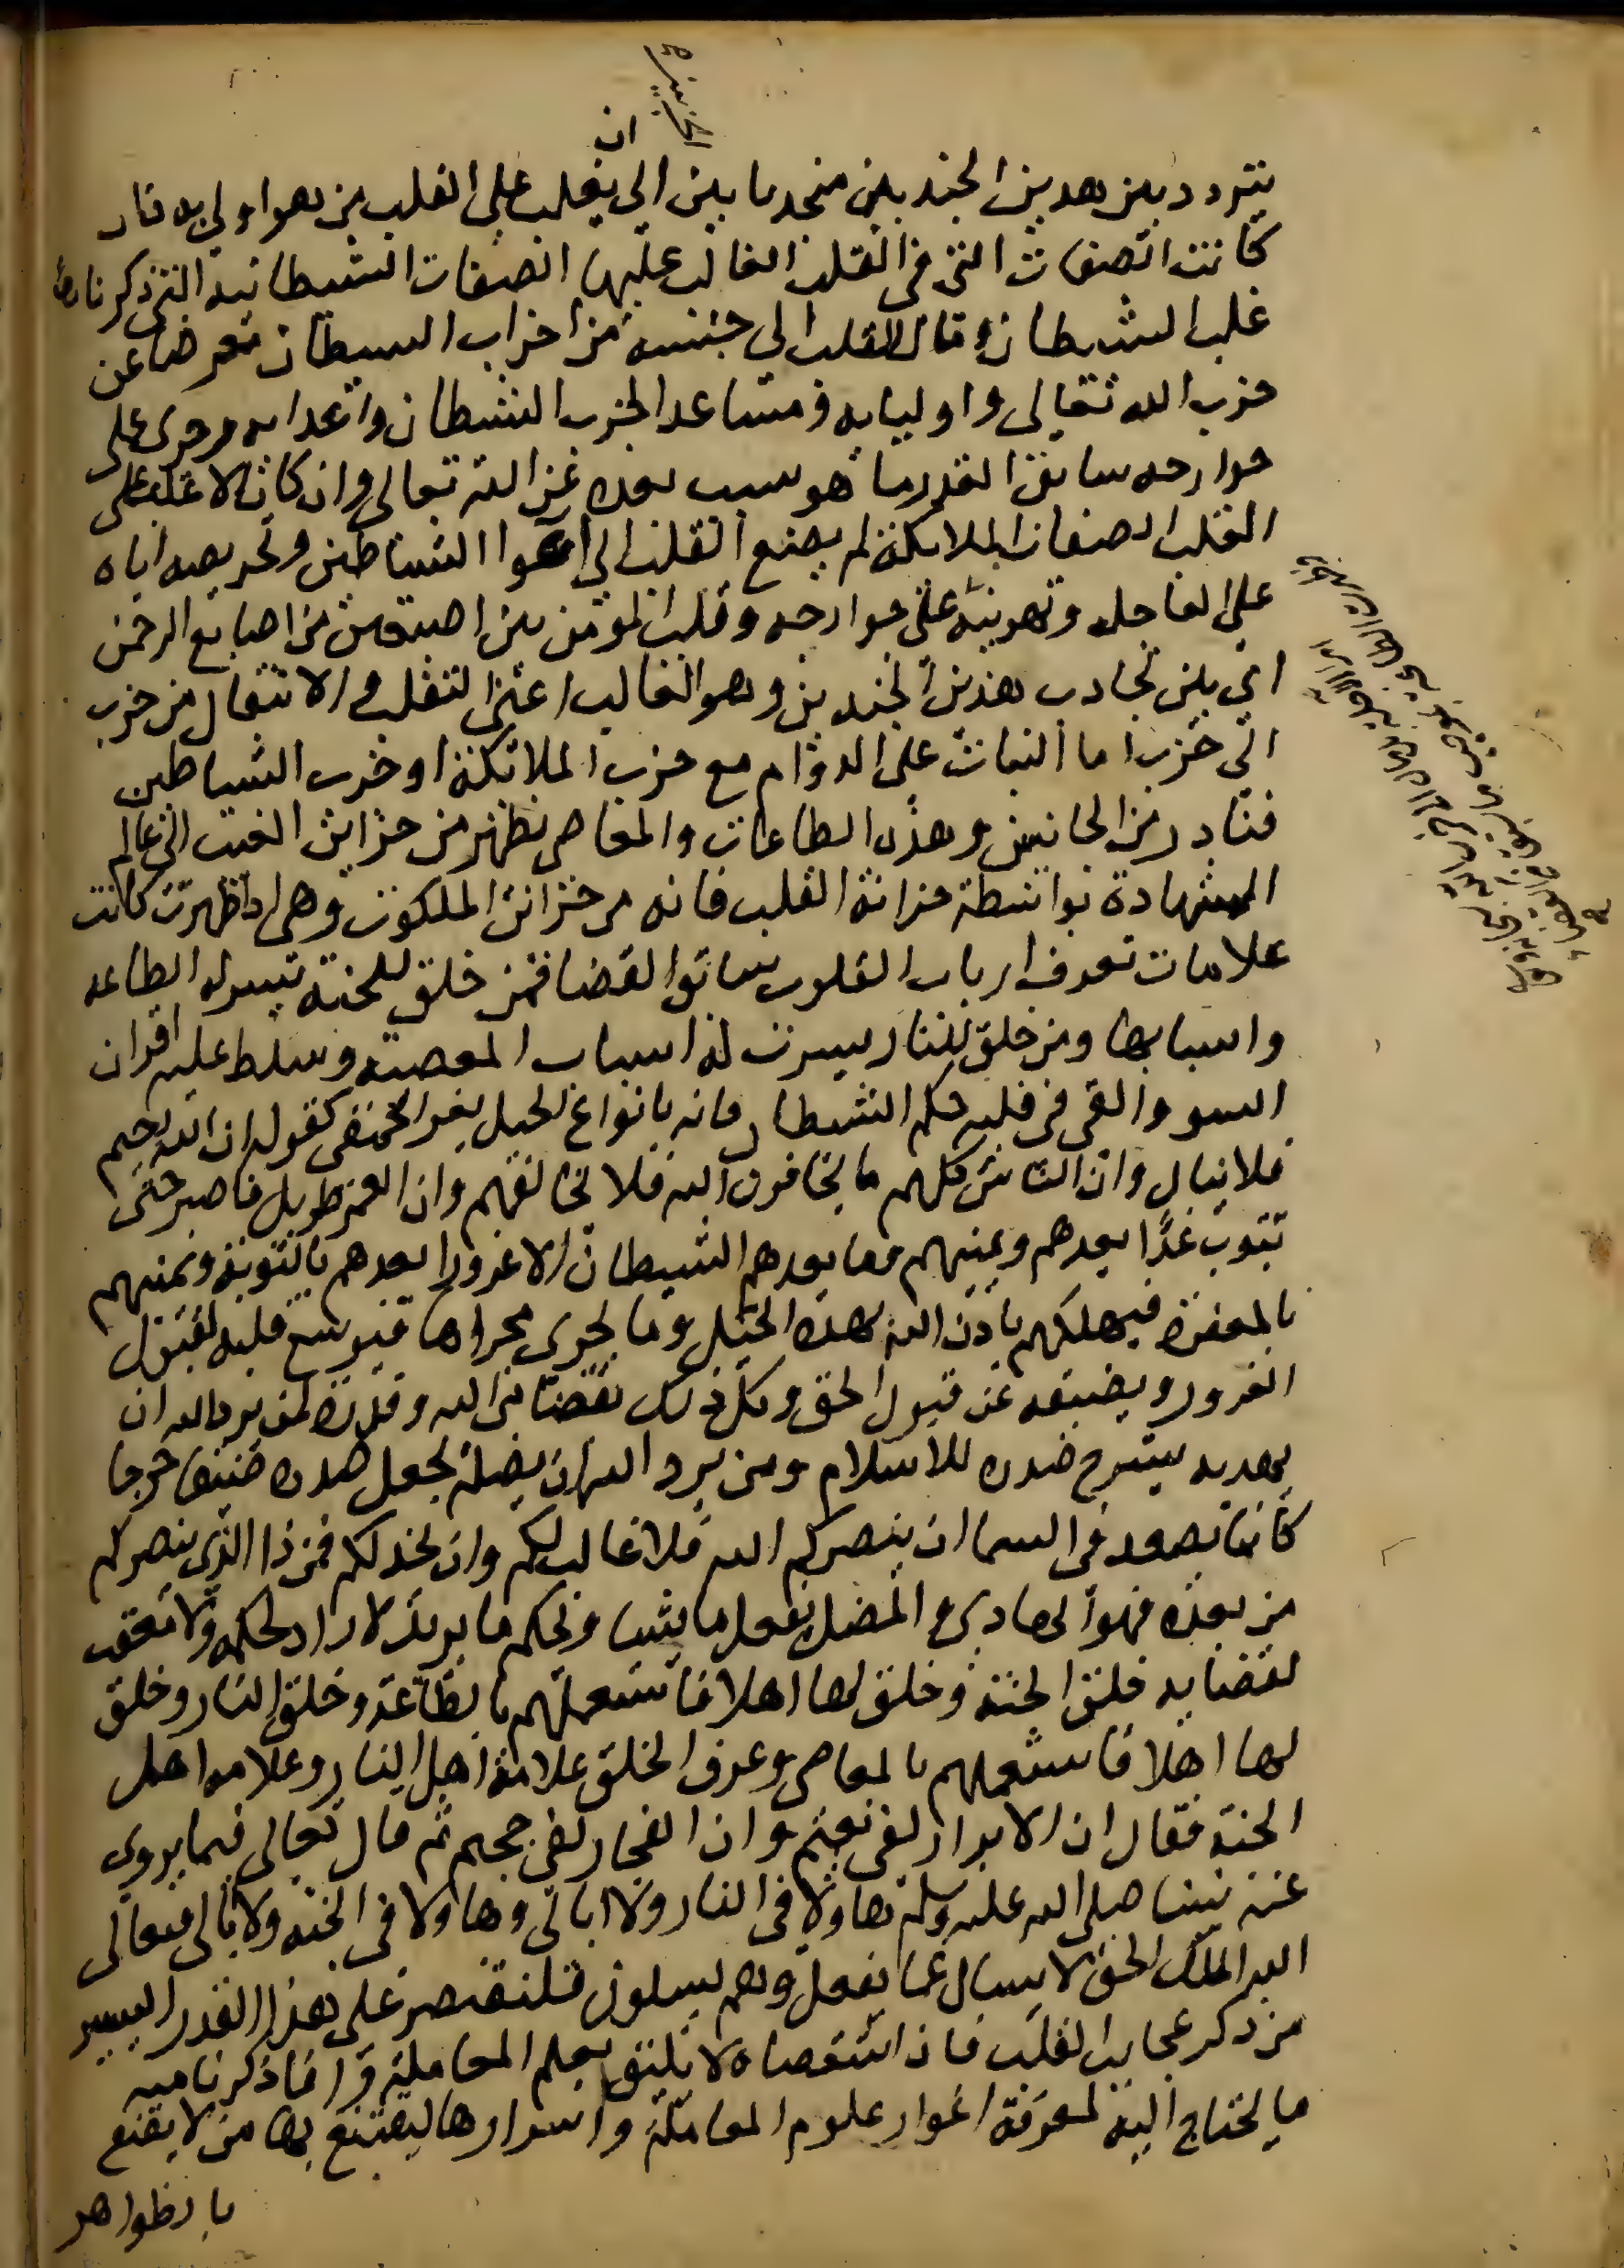 ان
يتردد بين هدين الجندين منجدبا بين الي يغلب علي القلب من هو اولي به فان
كانت الصفات التي في القلب الغالب عليها الصفات الشيطانية التي ذكرناها
غلب الشيطان ومال القلب الي جنسه من احزاب الشيطان معرضا عن
حزب الله تعالى واوليايه ومساعدا لحزب الشيطان واعدايه وجرى على
جوارحه سابق القدر ما هو سبب بعده عن الله تعالى وان كان الاغلب على
القلب الصفات الملائكة لم يصغ القلب الي اغوا الشياطين وتحريصه اياه
على العاجلة وتهوينه على جوارحه وقلب المؤمن بين اصبعين من اصابع الرحمن
اي بين تجادب هذين الجندين وهو الغالب اعني التقلب والانتقال من حزب
الي حزب اما الثبات على الدوام مع حزب الملائكة او حزب الشياطين
فنادر من الجانبين وهذه الطاعات والمعاصي تظهر من خزاين الغيب الي عالم
الشهادة بواسطة خزانة القلب فانه من خزائن الملكوت وهي اذا ظهرت كانت
علامات تعرف ارباب القلوب سابق القضا فمن خلق للجنة تيسر له الطاعة
واسبابها ومن خلق للنار يسرت له اسباب المعصية وسلط عليه اقران
السو والقي في قلبه حكم الشيطان فانه بانواع الحيل يغر الحمقى كقوله ان الله رحيم
فلا تبال وان الناس كلهم ما يخافون الله فلا تخالفهم وان العمر طويل فاصبر حتى
تتوب غدًا يعدهم ويمنيهم وما يعدهم الشيطان الا غرورا يعدهم بالتوبة ويمنيهم
بالمغفرة فيهلكهم باذن الله بهذه الحيل وما يجري مجراها فيوسع قلبه لقبول
الغرور ويضيقه عن قبول الحق وكل ذلك بقضا من الله وقدرة فمن يرد الله ان
يهديه يشرح صدره للاسلام ومن يرد الله ان يضله يجعل صدره ضيقا حرجا
كانما يصعد في السما ان ينصركم الله فلا غالب لكم وان يخدلكم فمن ذا الذي ينصركم
من بعده فهو الهادي والمضل يفعل ما يشا ويحكم ما يريد لا راد لحكمه ولا معقب
لقضايه خلق الجنة وخلق لها اهلا فاستعملهم بالطاعة وخلق النار وخلق
لها اهلا فاستعملهم بالمعاصي وعرف الخلق علامة اهل النار وعلامة اهل
الجنة فقال ان الابرار لفي نعيم وان الفجار لفي جحيم ثم قال تعالى فيما يروي
عنه نبينا صلى الله عليه وسلم هاولا في النار ولا ابالي وهاولا في الجنة ولا ابالي فتعالى
الله الملك الحق لا يسال عما يفعل وهم يسلون فلنقتصر على هذا القدر اليسير
من ذكر عجايب القلب فان استقصاه لا يليق بعلم المعاملة وانما ذكرنا منه
ما يحتاج اليه لمعرفة اغوار علوم المعاملة واسرارها ليقتنع بها من لا يقنع
بالظواهر